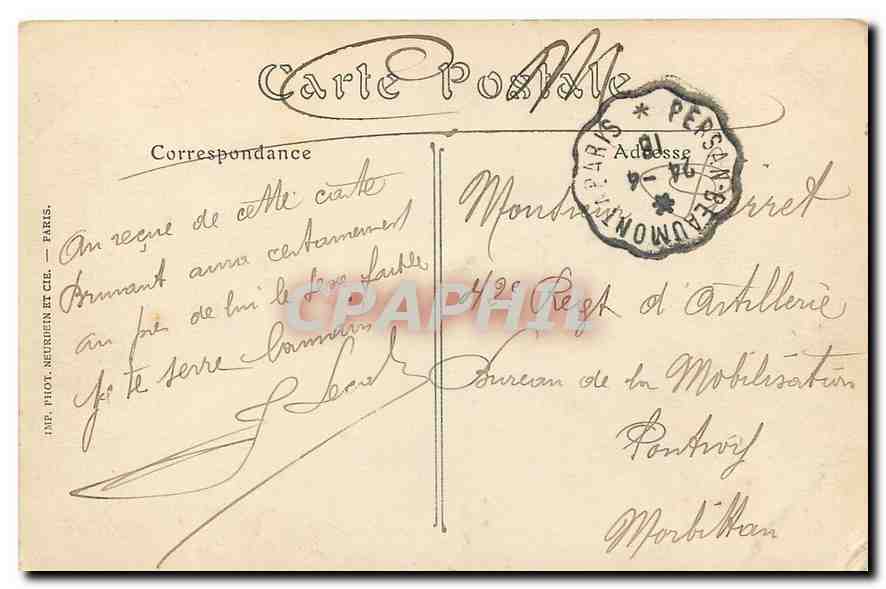 Carte Postale
Correspondance
Adresse
PERSAN-BEAUMONT PARIS
24 - 4
18
Au reçue de cette carte
aura certainement
au près de lui le sexe faible
Je te serre la main
Monsieur
42e Regt d'Artillerie
Bureau de la Mobilisation
Pontivy
Morbihan
IMP. PHOT. NEURDEIN ET CIE. — PARIS.
CPAPHIL